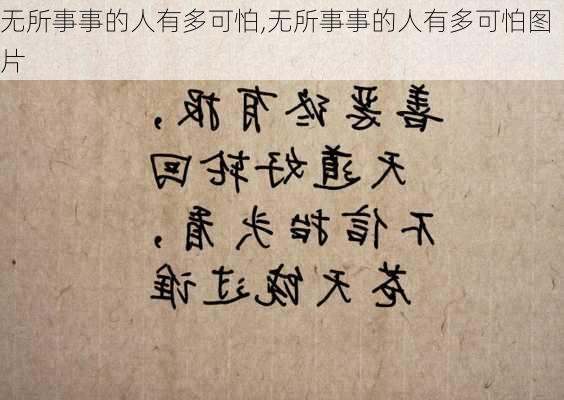 无所事事的人有多可怕,无所事事的人有多可怕图
片
善恶终有报，
天道好轮回
不信抬头看，
苍天饶过谁